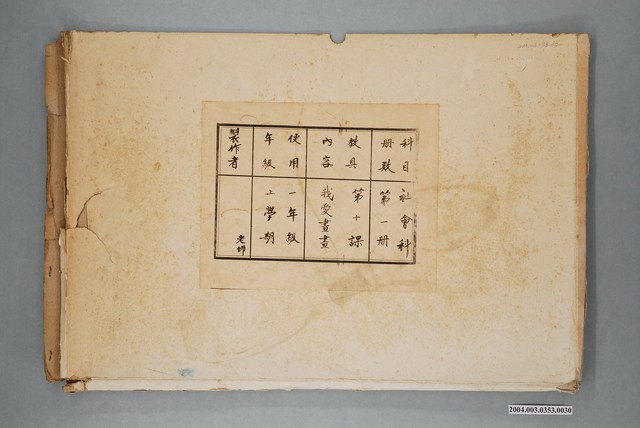 科目
冊數
社會科
第一冊
教具
內容
第十課
我愛畫畫
使用
年級
一年級
上學期
製作者
老師
2004.003.0353.0030